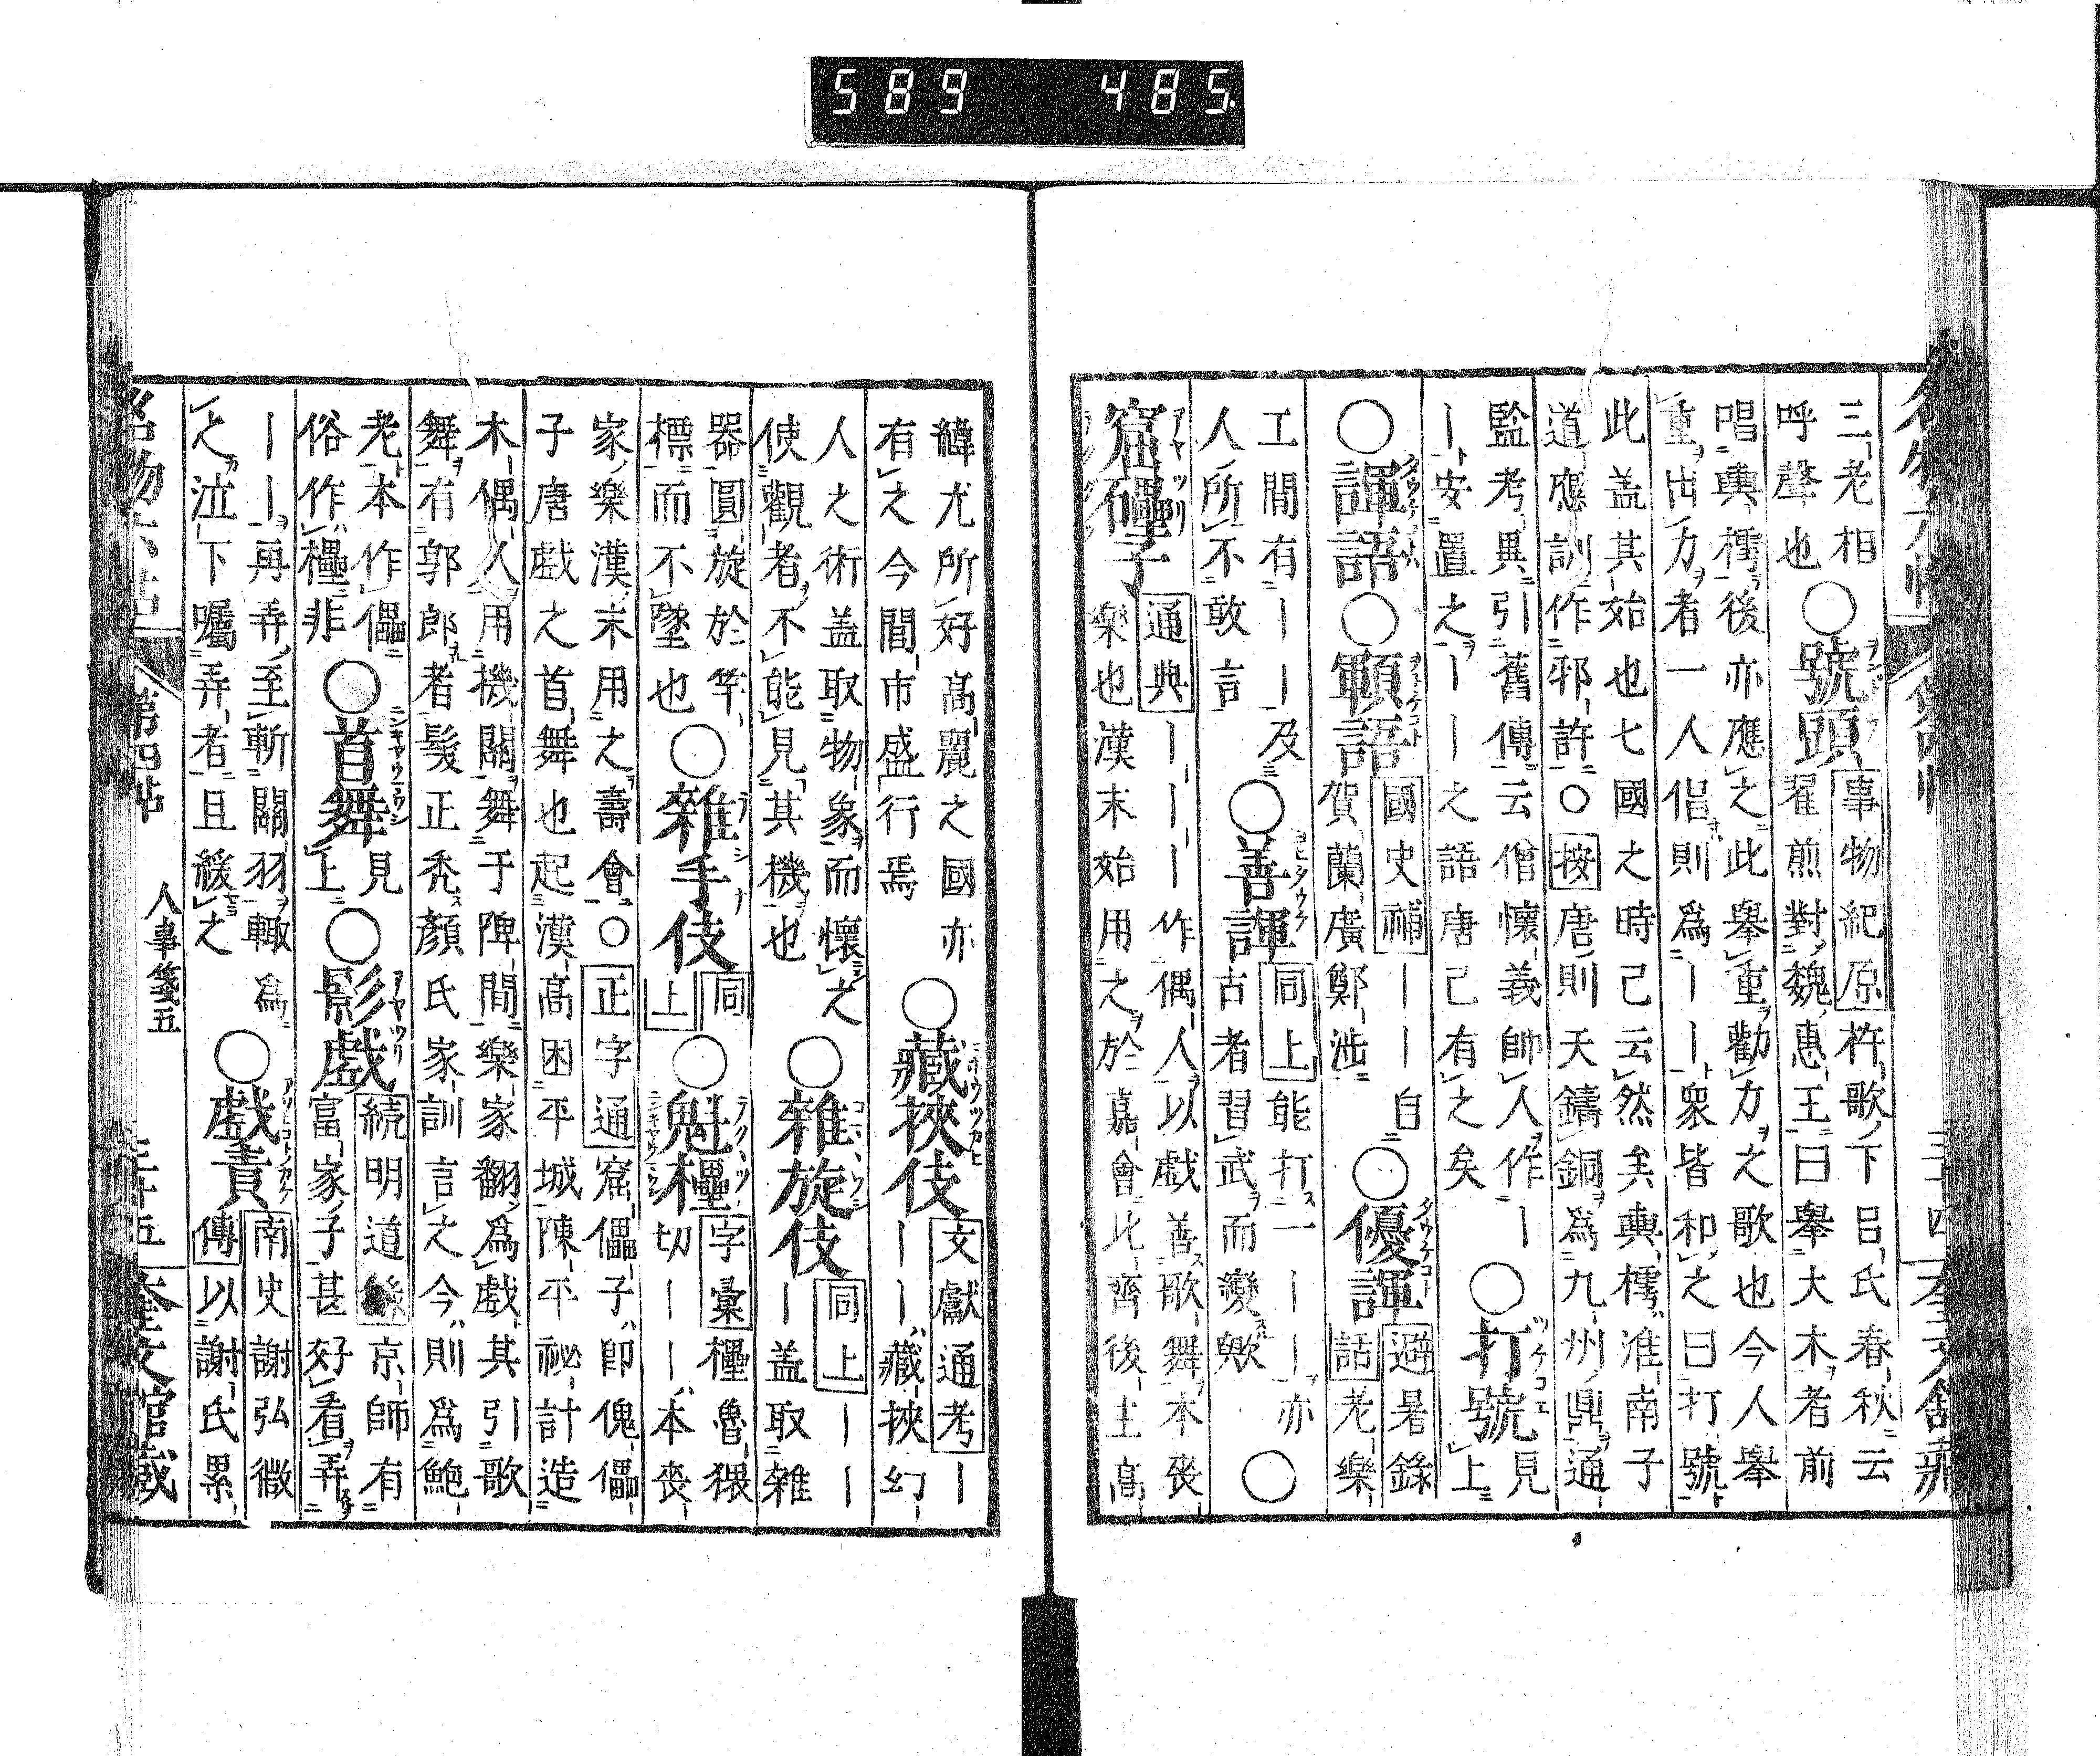 三老相
呼聲也
○號頭
事物紀原 杵歌下呂氏春秋云
翟煎對魏惠王曰舉大木者前
唱輿樗後亦應之此舉重勸力之歌也今人舉
重出力者一人倡則爲――衆皆和之曰打號
此盖其始也七國之時已云然矣輿樗淮南子
道應訓作邪許○按唐則天鑄銅爲九州鼎通
監考異引舊傳云僧懷義帥人作―
―安置之―――之語唐已有之矣
○打號
見上
○諢語○顐語
國史補――自
賀蘭廣鄭涉
○優諢
避暑錄話老樂
工間有―――及
人所不敢言
○善諢
同上能打一――亦
古者習武而變歟
○
窟礧子
通典―――作偶人以戲善歌舞本喪
樂也漢末始用之於嘉會北齊後主高
緯尤所好高麗之國亦
有之今閭市盛行焉
○藏挾伎
文獻通考―
――藏挾幻
人之術盖取物象而懷之
使觀者不能見其機也
○雜旋伎
同上――
―盖取雜
器圓旋於竿
標而不墜也
○雜手伎
同上
○魁櫑
字彙櫑魯猥
切――本喪
家樂漢末用之壽會○正字通窟儡子卽傀儡
子唐戲之首舞也起漢高困平城陳平祕計造
木偶人用機關舞于陴間樂家翻爲戲其引歌
舞有郭郎者髮正禿顏氏家訓言之今則爲鮑
老本作儡
俗作櫑非
○首舞
見上
○影戲
続明道 京師有
富家子甚好看弄
――再弄至斬關羽輙爲
之泣下囑弄者且緩之
○戲責
南史謝弘微
傳以謝氏累
名物六帖 第四帖 人事箋五 三十五 奎文館藏